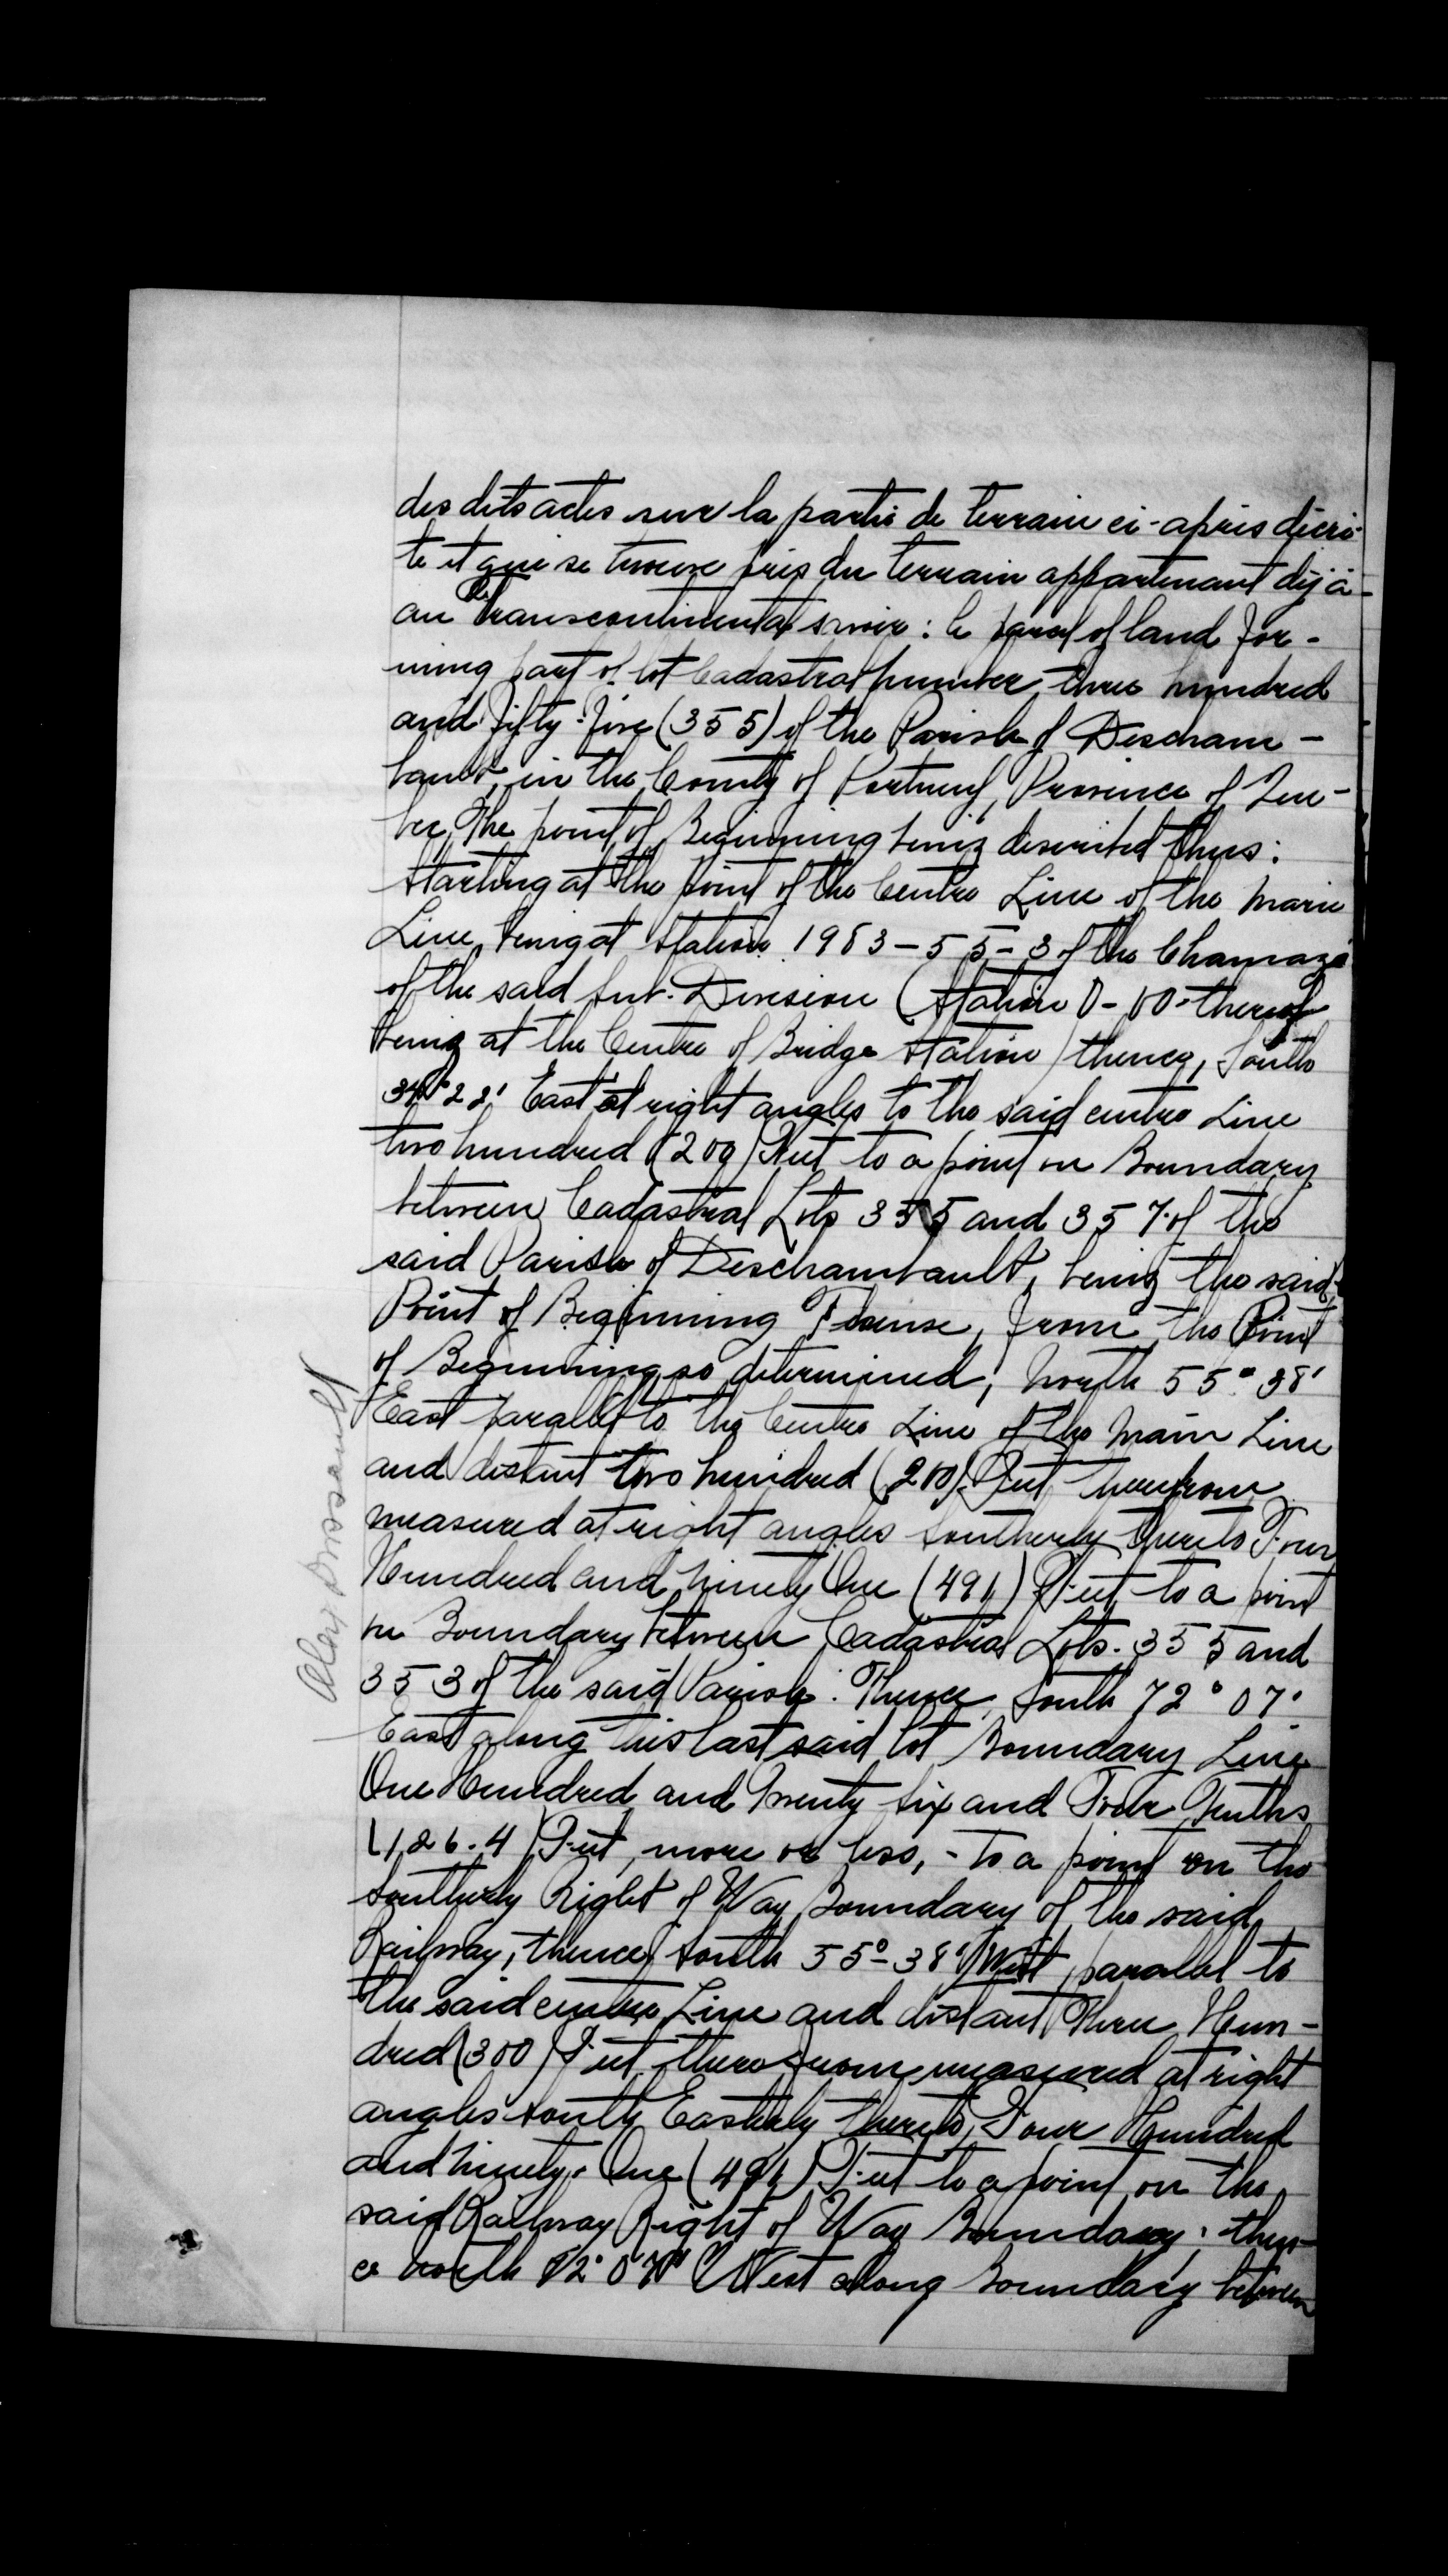 des dits actes sur la partie de terrain ci-après décri-
te et qui se trouve près du terrain appartenant déjà
au Transcontinental savoir: la parcel of land for-
ming part of lot Cadastral number three hundred
and fifty-five (355) of the Parish of Descham-
bault, in the County of Portneuf, Province of Que-
bec, The point of Beginning being described thus:
Starting at the point of the Centre Line of the Main
Line, being at Station 1983-55-3 of the Chainage
of the said Sub-Division (Station 0-00 thereof
being at the Centre of Bridge Station) thence, South
34°22' East at right angles to the said centre Line
two hundred (200) Feet to a point on Boundary
between Cadastral Lots 355 and 357 of the
said Parish of Deschambault, being the said
Point of Beginning Thense, from the Point
of Beginning so determined, North 55° 38'
East parallel to the Centre Line of the Main Line
and distant two hundred (200) Feet therefrom
measured at right angles Southerly thereto Four
Hundred and ninety One (491) Feet to a point
on Boundary between Cadastral Lots. 355 and
353 of the said Parish. Thence, South 72° 07'
East along this last said lot Boundary Line
One Hundred and Twenty Six and Four Tenths
(126.4) Feet, more or less, - to a point on the
Southerly Right of Way Boundary of the said
Railway, thence South 55°-38' West, parallel to
the said centre Line and distant Three Hun-
dred (300) Feet there from measured at right
angles South Easterly thereto, Four Hundred
and ninety-One (491) Feet to a point on the
said Railway Right of Way Boundary; then-
ce North 72° 07' West along Boundary between